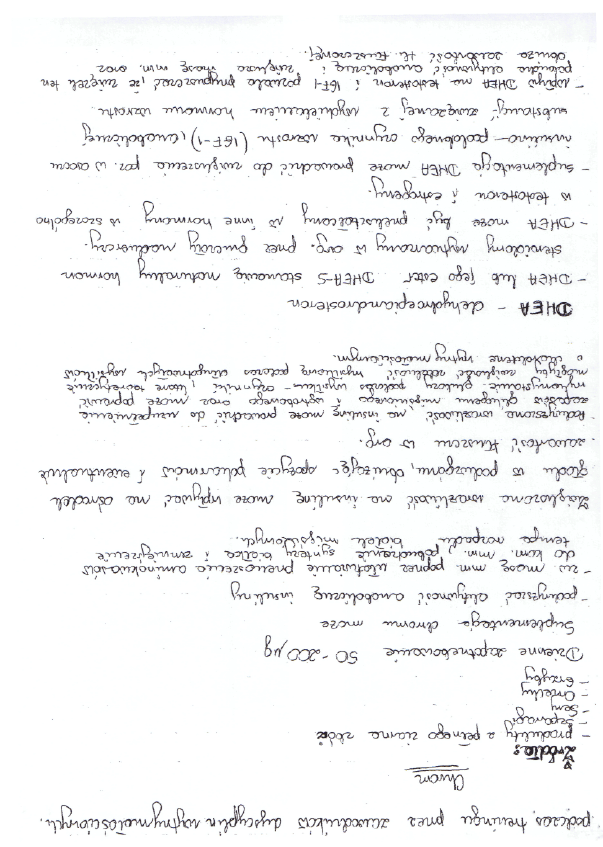 podczas treningu przez zawodników dyscyplin wytrzymałościowych.
Chrom
Źródła:
- produkty z pełnego ziarna zbóż
- Szparagi
- Sery
- Orzechy
- Grzyby
Dzienne zapotrzebowanie 50-200 µg
Suplementacja chromu może
- podwyższać aktywność anaboliczną insuliny
- zw. masę mm. poprzez ułatwianie przenoszenia aminokwasów
do kom. mm., pobudzanie syntezy białka i zmniejszenie
tempa rozpadu białek mięśniowych.
Zwiększona wrażliwość na insulinę może wpływać na ośrodek
głodu w podwzgórzu, obniżając apetyt i ewentualnie
zawartość tłuszczu w org.
Podwyższona wrażliwość na insulinę może prowadzić do uzupełnienia
zasobów glikogenu mięśniowego i wątrobowego oraz może poprawić
wykorzystanie glukozy podczas wysiłku - czynniki, które teoretycznie
mogłyby zwiększać zdolność wysiłkową podczas długotrwałych wysiłków
o charakterze wytrzymałościowym.
DHEA - dehydroepiandrosteron
- DHEA lub jego ester DHEA-S stanowią naturalny hormon
steroidowy wytwarzany w org. przez gruczoły nadnerczy.
- DHEA może być przekształcany w inne hormony w szczególno
w testosteron i estrogeny.
- Suplementacja DHEA może prowadzić do zwiększenia poz. w osoczu
insulino-podobnego czynnika wzrostu (IGF-1) (anabolicznej
substancji związanej z wydzielaniem hormonu wzrostu.
- Wpływ DHEA na testosteron i IGF-1 pozwala przypuszczać, że związek ten
posiada aktywność anaboliczną i zwiększa masę mm. oraz
obniża zawartość tk. tłuszczowej.